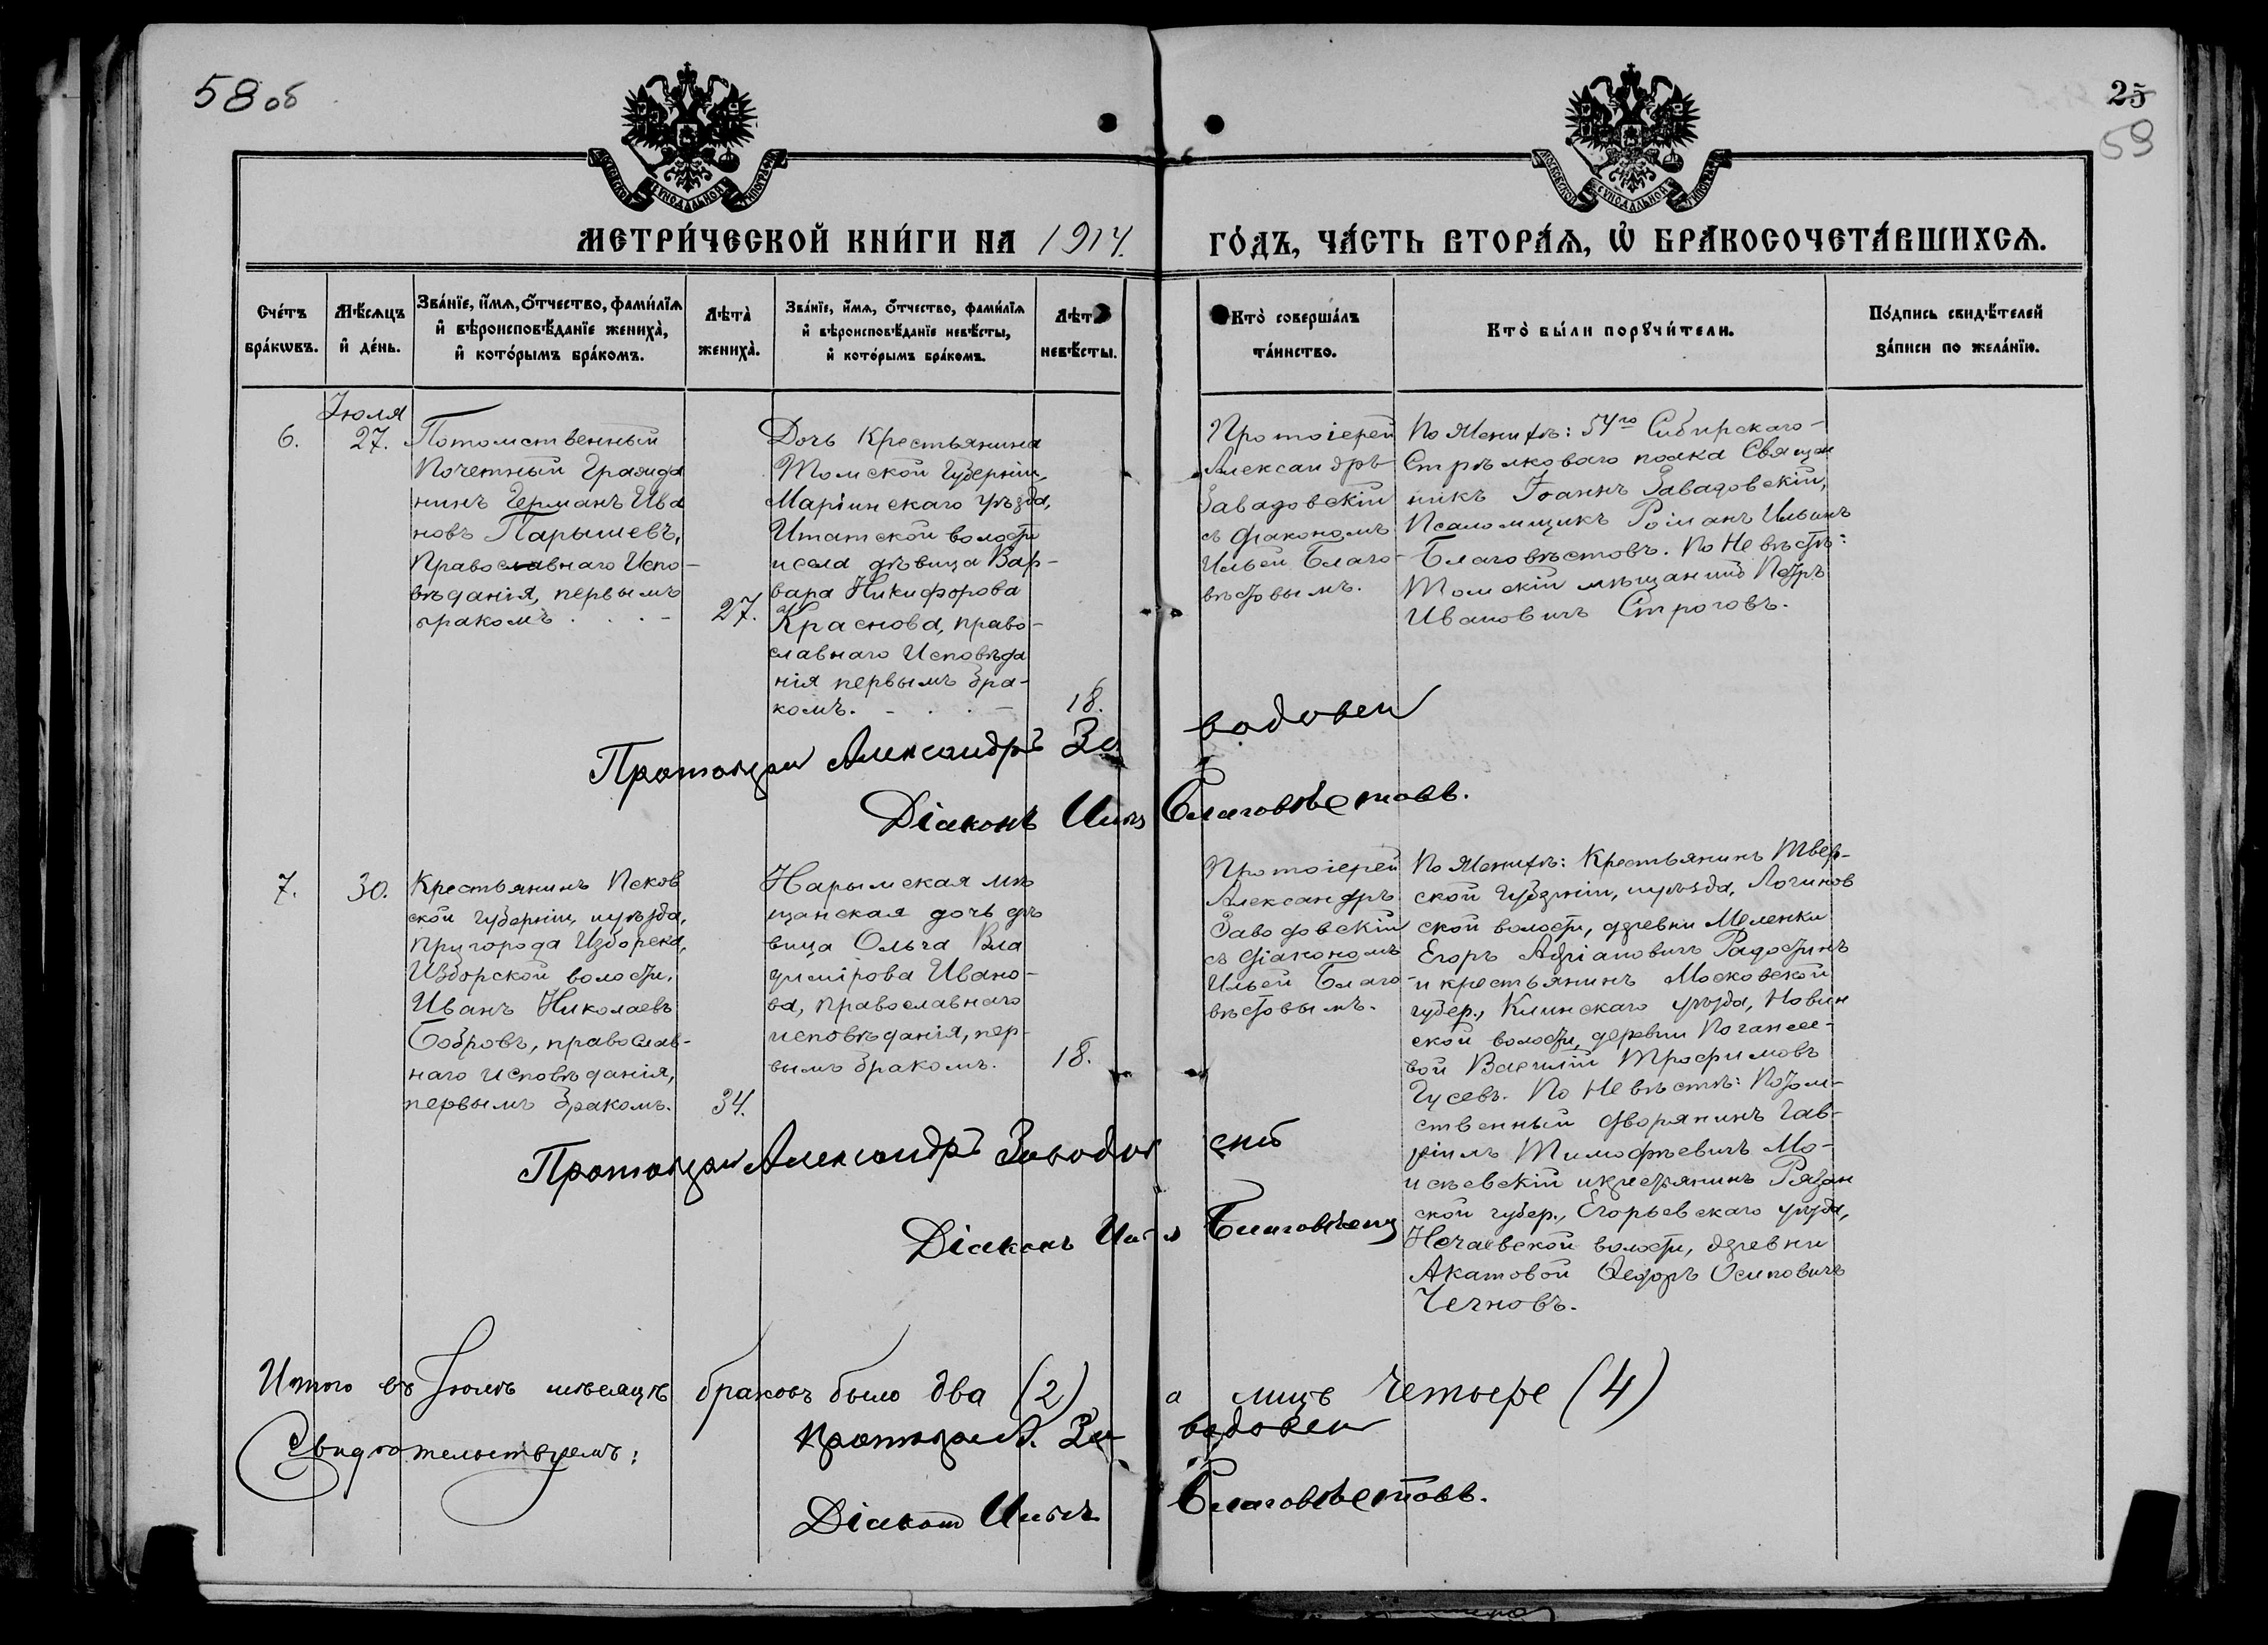 58 об
25
59
МОСКОВСКОЙ СѴНОДАЛЬНОЙ ТИПОГРАФІИ
МОСКОВСКОЙ СѴНОДАЛЬНОЙ ТИПОГРАФІИ
МЕТРИ́ЧЕСКОЙ КНИ́ГИ НА 1914. ГО́ДЪ, ЧА́СТЬ ВТОРА́Ѧ, Ѽ БРА́КОСОЧЕТА́ВШИХСѦ.
Сче́тъ
бра́кѡвъ.
Мѣ́сѧцъ
и҆ де́нь.
Зва́нїе, и҆́мѧ, ѻ҆́тчество, фами́лїѧ
и҆ вѣроисповѣ́данїе жениха̀,
и҆ кото́рымъ бра́комъ.
Лѣта̀
жениха̀.
Зва́нїе, и҆́мѧ, ѻ҆́тчество, фами́лїѧ
и҆ вѣроисповѣ́данїе невѣ́сты,
и҆ кото́рымъ бра́комъ.
Лѣт
невѣ́сты.
Кто̀ соверша́лъ
та́инство.
Кто̀ бы́ли порꙋчи́тели.
По́дпись свидѣ́телей
за́писи по жела́нїю.
Іюля
6.
27.
Потомственный
Почетный Гражда
нинъ Германъ Ива
новъ Парышевъ,
Православнаго Испо-
вѣданія, первымъ
бракомъ . . . -
27.
Дочь Крестьянина
Томской Губерніи,
Маріинскаго уѣзда,
Итатской волости
и села дѣвица Вар-
вара Никифорова
Краснова, право-
славнаго Исповѣда
нія первымъ бра-
комъ. - . . -
18.
Протоіерей
Александръ
Завадовскій
съ діакономъ
Ильей Благо-
вѣстовымъ.
По Женихѣ: 54го Сибирскаго-
Стрѣлковаго полка Священ
никъ Іоаннъ Завадовскій,
Псаломщикъ Романъ Ильинъ
Благовѣстовъ. По Невѣстѣ:
Томскій мѣщанинъ Петръ
Ивановичъ Строговъ.
Протоіерей Александръ Завадовск
Діаконъ Илія Благовѣстовъ.
7.
30.
Крестьянинъ Псков
ской губерніи, и уѣзда,
пригорода Изборска,
Изборской волости,
Иванъ Николаевъ
Бобровъ, православ-
наго исповѣданія,
первымъ бракомъ.
34.
Нарымская мѣ
щанская дочь дѣ
вица Ольга Вла
димірова Ивано-
ва, православнаго
исповѣданія, пер-
вымъ бракомъ.
18.
Протоіерей
Александръ
Заводовскій
съ діакономъ
Ильей Благо-
вѣстовымъ.
По Женихѣ: Крестьянинъ Твер-
ской губерніи, и уѣзда, Логинов
ской волости, деревни Меленки
Егоръ Адріановичъ Радостинъ
и крестьянинъ Московской
губер., Клинскаго уѣзда, Новин
ской волости, деревни
вой Василій Трофимовъ
Гусевъ. По Невѣстѣ: Потом-
ственный дворянинъ Гав-
ріилъ Тимофѣевичъ Мо-
исѣевскій и крестьянинъ Рязан
ской губер., Егорьевскаго уѣзда,
Нечаевской волости, деревни
Акатовой Ѳедоръ Осиповичъ
Протоіерей Александръ Заводовскій
Діаконъ Илія Благовѣст
Итого въ Іюлѣ мѣсяцѣ браковъ было два (2) а лицъ четыре (4)
Свидѣтельствуемъ:
Протоіерей А. Завадовск
Діаконъ Илія Благовѣстовъ.